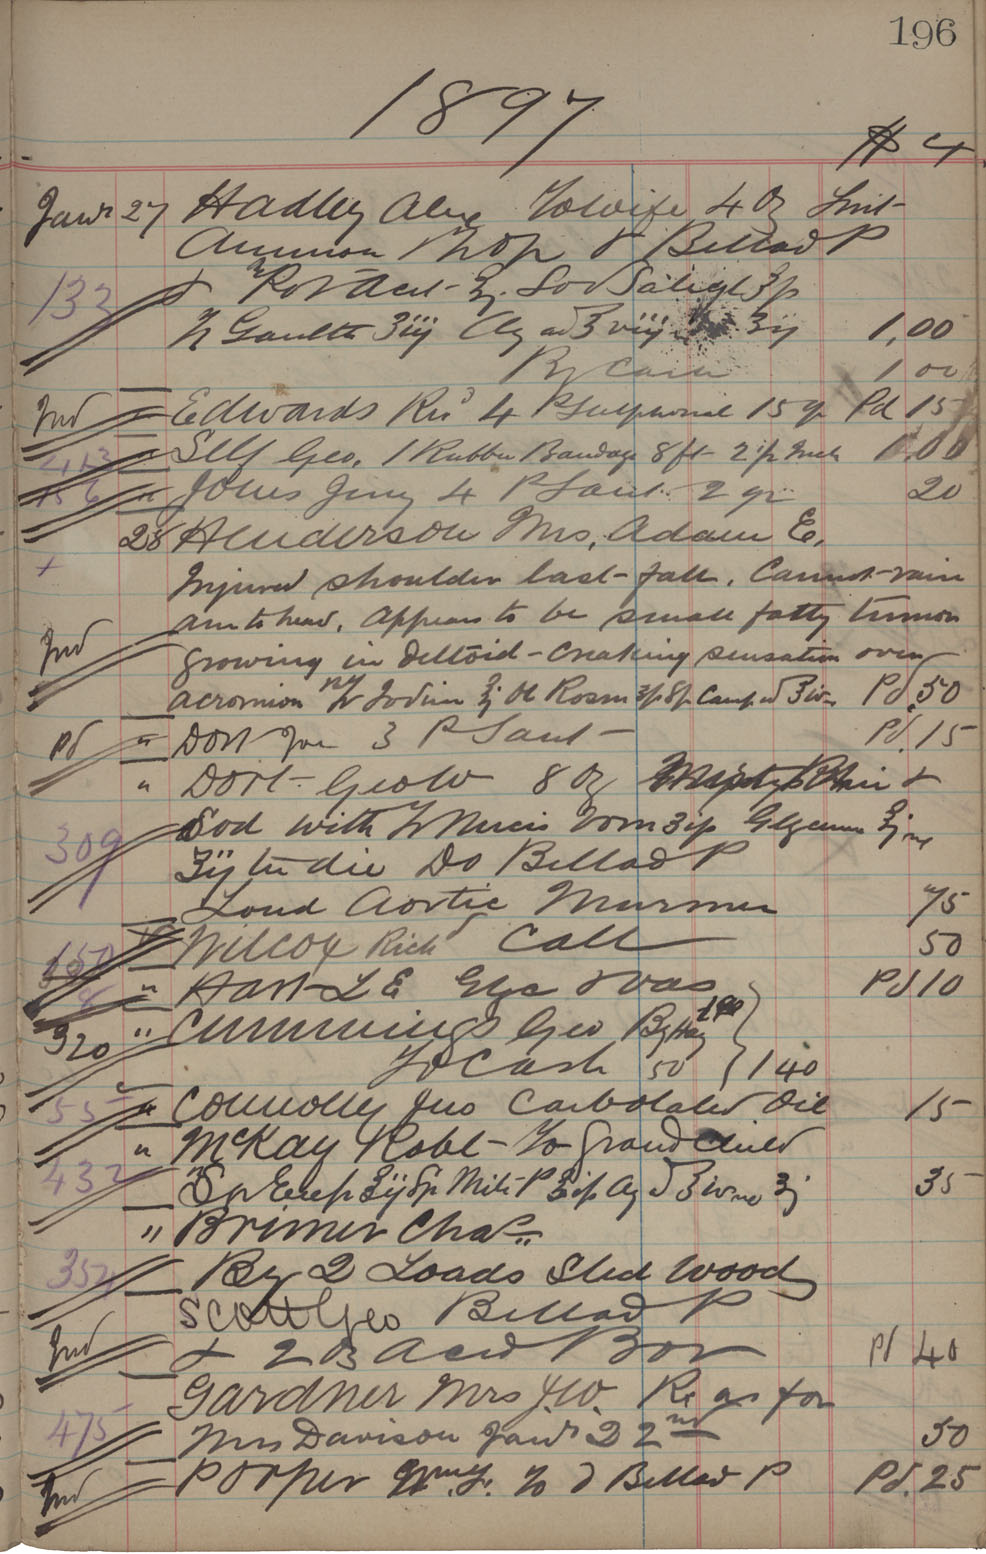 196
1897
$ ¢
Janr 27 Hadley Alex To Wife 4 Oz Linit
Ammon & Bellad P
132 & Pot Acet Sod Salicyl ʒſs
Gaulth ʒiij Aq ad ℥viij ʒij 1,00
By Cash 1 00
Ind " Edwards Ric^d 4 P Sulphonal 15 gr Pd 15
413 " Self Geo. 1 Rubber Bandage 8 ft 2 ½ Inch 1.00
156 " Jones Jerry 4 P Sant 2 gr 20
28 Henderson Mrs. Adam E.
+ Injured shoulder last fall. Cannot raise
arm to head. Appears to be small fatty tumor
Ind growing in deltoid - creaking sensation over
acromion Tr Iodin Ol Rosm Sp Camp ad ℥iv Pd .50
Pd " Dort Joe 3 P Sant Pd. 15
" Dort Geo W 8 Oz &
309 Sod with Tr Nucis Vom ʒiſs Glycerin
ʒij ter die Do Bellad P
Loud Aortic Murmur 75
157 Wilcox Rich^d Call 50
" Hart L E Glyc & Vas Pd 10
320 " Cummings Geo By Hay 190
To Cash 50 } 1 40
55 " Connolly Jno Carbolated Oil 15
" McKay Robt To Grand Child
432 Sp ʒij Sp Mit P ʒiſs Aq ad ℥iv 35
" Brimer Chas.
354 By 2 Loads Sled Wood
Scott Geo Bellad P
Ind & 2 Oz Acid Bor Pd 40
Gardner Mrs J.W. Re as for
475 Mrs Davison Janr 22nd 50
Ind Porper Wm. To Bellad P Pd. 25